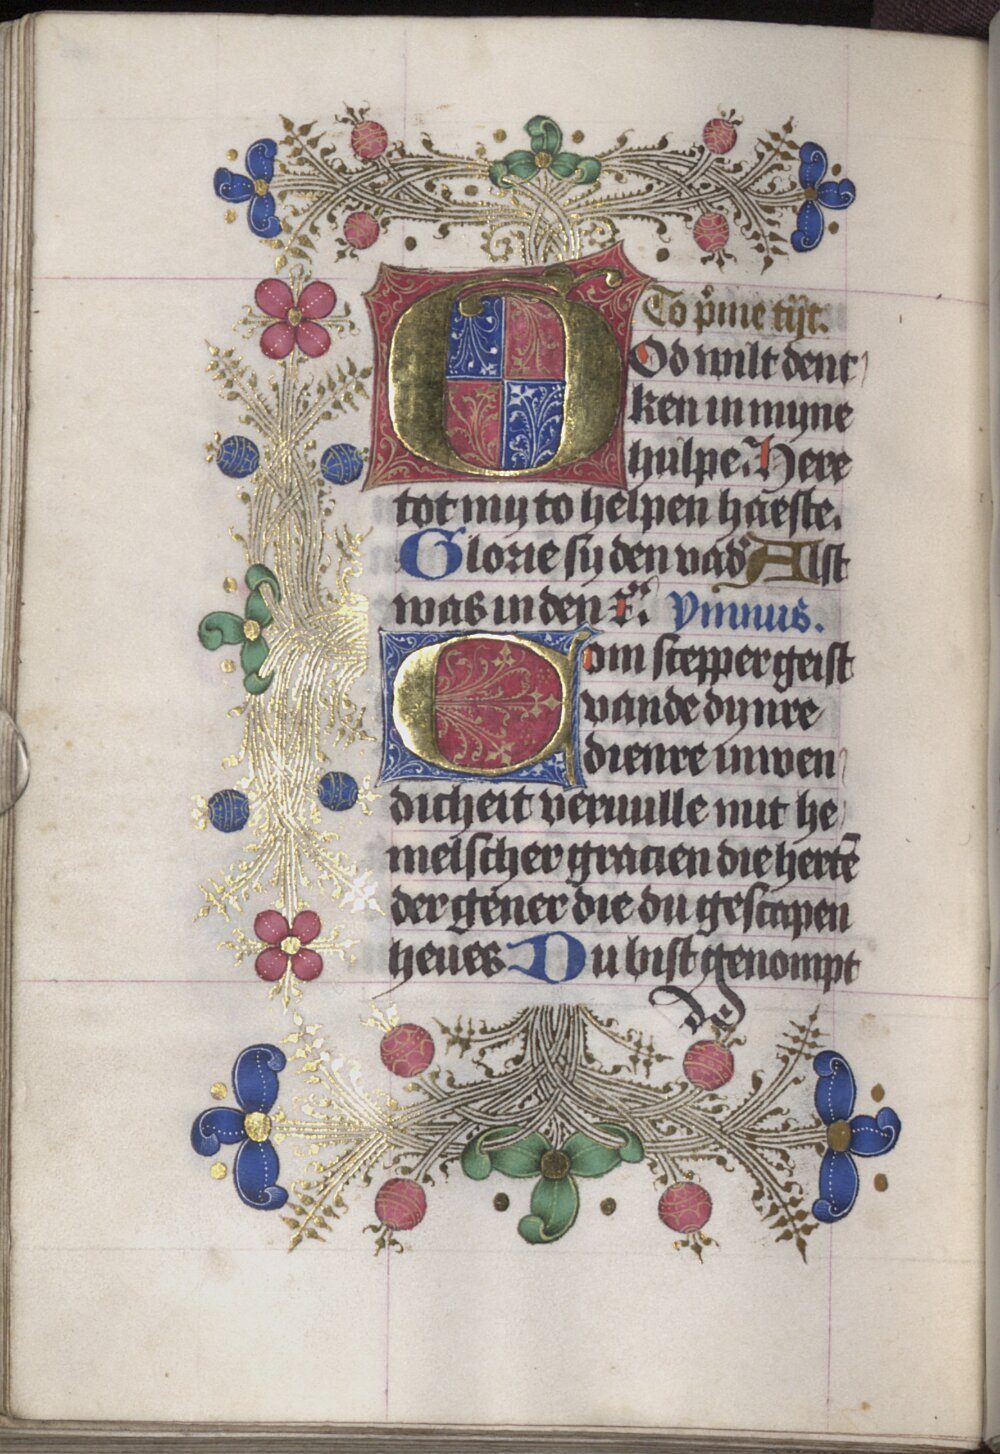 To p̄me tijt.
GOd wilt denc
ken in myne
hulpe. Here
tot my to helpen haeste.
Glorie sy den vad' Alst
was in den Ymnus.
Com scepper geist
vande dynre
dienre inwen
dicheit vervulle mit he
melscher gracien die hertē
der gener die du gescapen
heues Du bist genompt